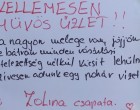 KELLEMESEN
HŰVÖS ÜZLET!!
Ha nagyon melege van, jöjjön
be bátran minden vásárlási
kötelezettség nélkül kicsit lehűlni
Szívesen adunk egy pohár vizet
Zolina csapata.